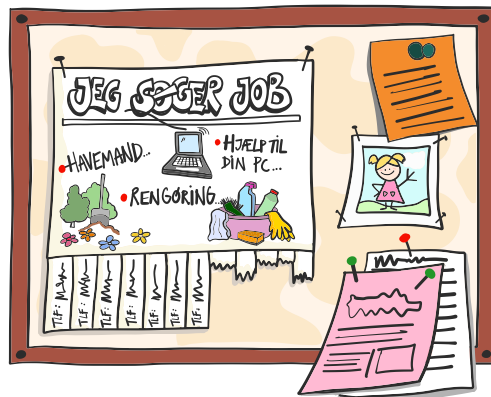 JEG SØGER JOB
• HAVEMAND...
• HJÆLP TIL
DIN PC...
• RENGØRING...
TLF:
TLF:
TLF:
TLF:
TLF:
TLF:
TLF: